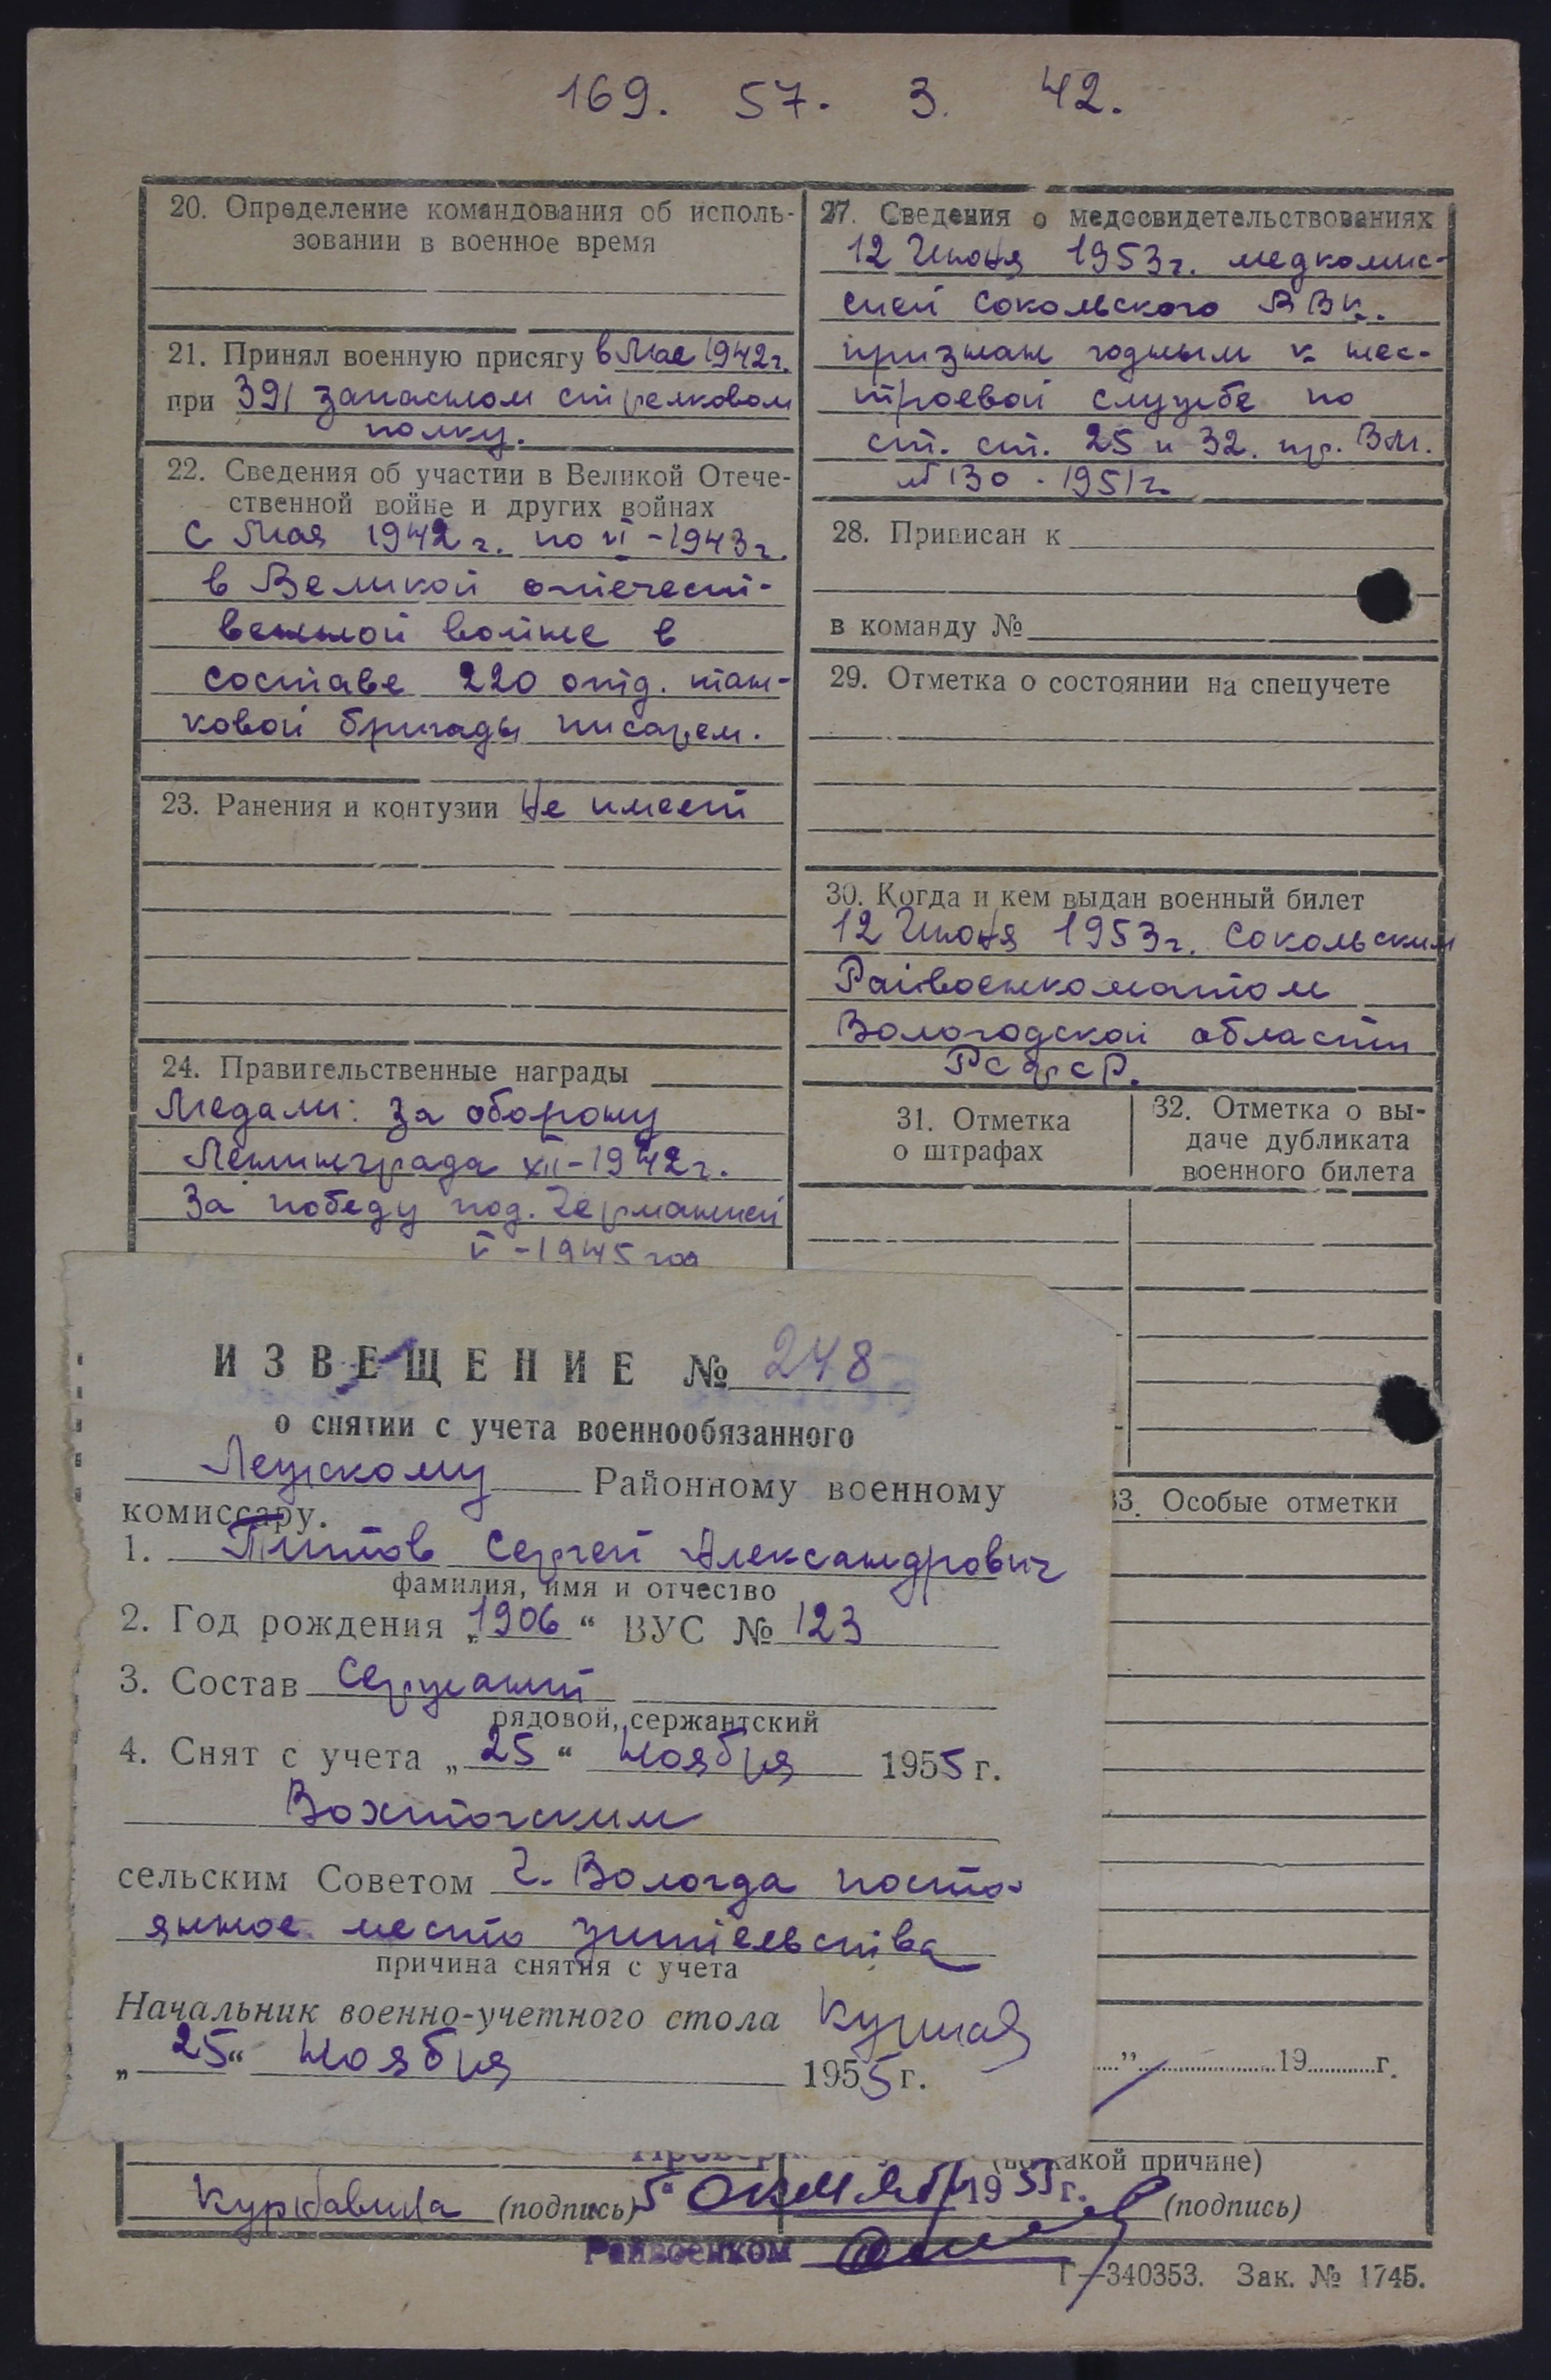 169. 57. 3. 42.
20. Определение командования об исполь-
зовании в военное время
21. Принял военную присягу в Мае 1942г.
при 391 запасном стрелковом
полку.
22. Сведения об участии в Великой Отече-
ственной войне и других войнах
с Мая 1942 г. по VI-1943г.
в Великой отечест-
венной войне в
составе 220 отд. тан-
ковой бригады писарем.
23. Ранения и контузии Не имеет
24. Правительственные награды
Медали: За оборону
Ленинграда XII-1942г.
За победу над Германией
V-1945 год
27. Сведения о медосвидетельствованиях
12 Июня 1953г. медкомис-
сией Сокольского РВК.
признан годным к нес-
троевой службе по
ст. ст. 25 и 32. пр. ВМ.
№ 130 - 1951г.
28. Приписан к
в команду №
29. Отметка о состоянии на спецучете
30. Когда и кем выдан военный билет
12 Июня 1953г. Сокольским
Райвоенкоматом
Вологодской области
РСФСР.
31. Отметка
о штрафах
32. Отметка о вы-
даче дубликата
военного билета
33. Особые отметки
ИЗВЕЩЕНИЕ № 248
о снятии с учета военнообязанного
Лежскому Районному военному
комиссару.
1. Титов Сергей Александрович
фамилия, имя и отчество
2. Год рождения „1906“ ВУС № 123
3. Состав Сержант
рядовой, сержантский
4. Снят с учета „25“ Ноября 1955 г.
Вохтогским
сельским Советом г. Вологда посто-
янное место жительства
причина снятия с учета
Начальник военно-учетного стола
„25“ Ноября 1955 г.
” 19 г.
какой причине)
(подпись) 5" Октября 1955 г. (подпись)
Райвоенком
Г—340353. Зак. № 1745.